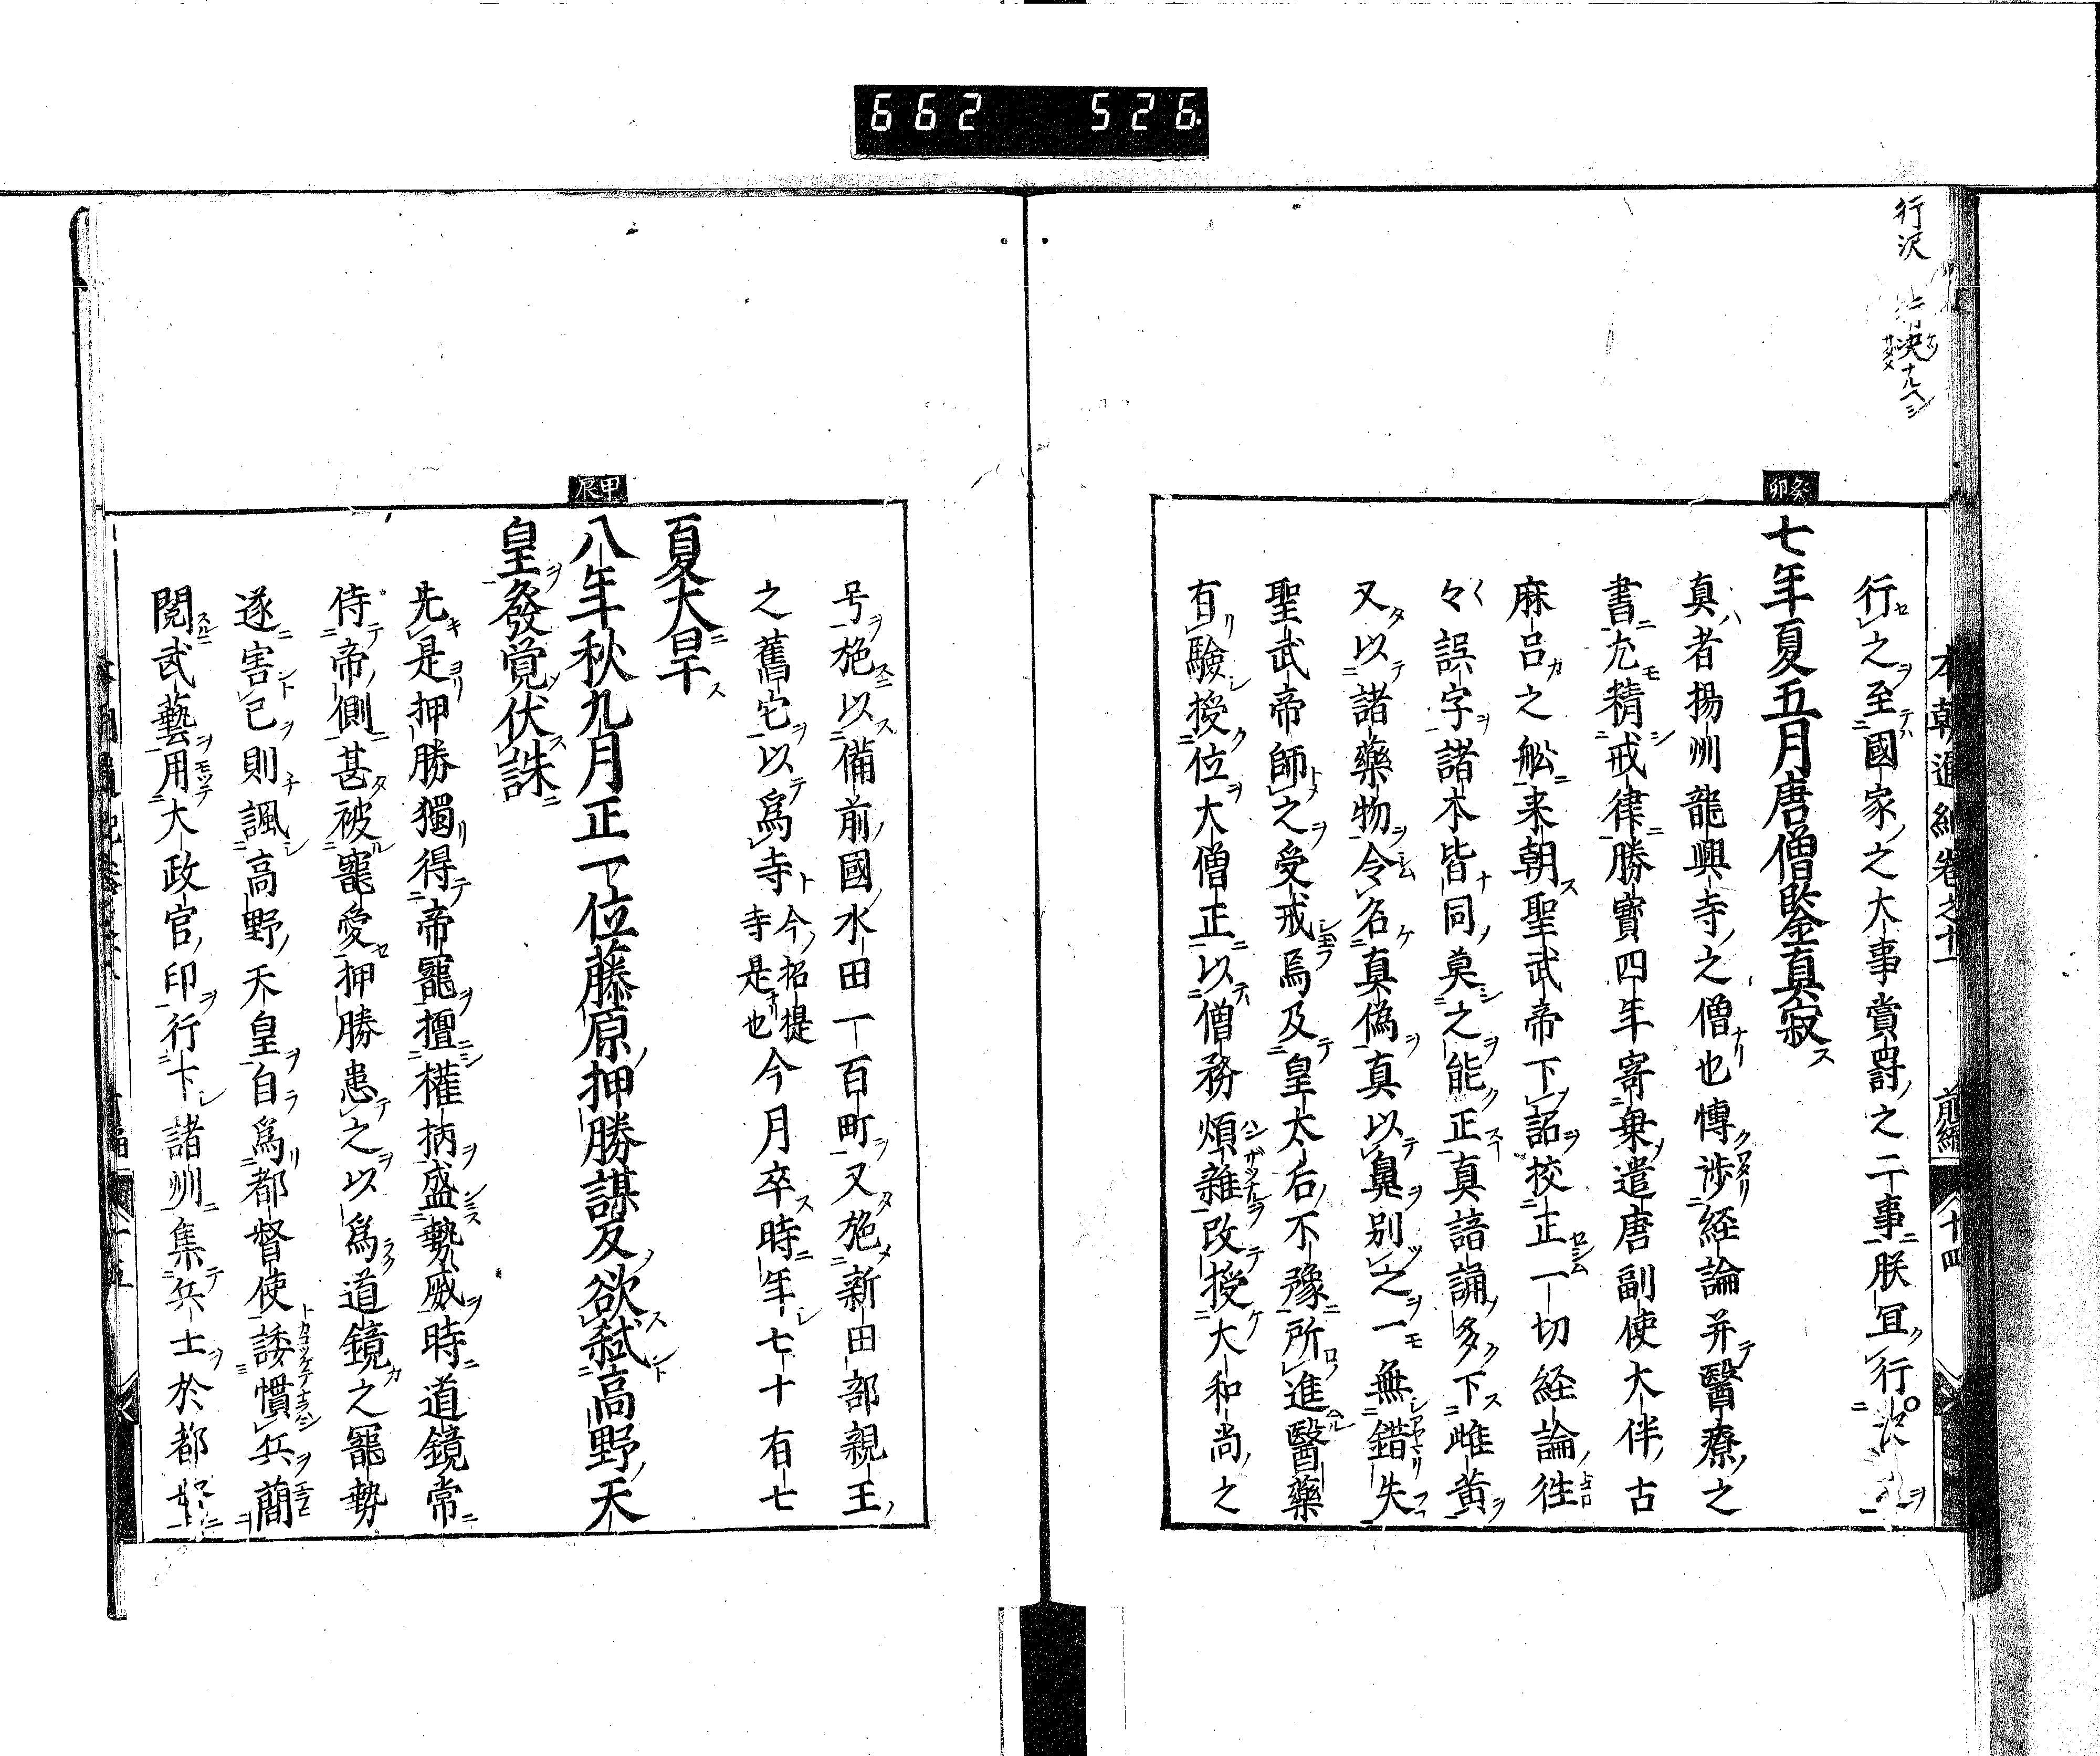 662 526
行沢
决ナルヘシ
本朝通紀卷之十一 前編 十四
行之至國家之大事賞罸之二事朕冝行
癸卯
七年夏五月唐僧鑒真寂
真者揚州龍興寺之僧也博渉経論并醫療之
書尤精戒律勝寳四年寄乗遣唐副使大伴古
麻呂之舩来朝聖武帝下詔挍正一切経論徃
々誤字諸本皆同莫之能正真諳誦多下雌黄
又以諸藥物令名真偽真以鼻别之一無錯失
聖武帝師之受戒焉及皇太后不豫所進醫藥
有驗授位大僧正以僧務煩雜改授大和尚之
号施以備前國水田一百町又施新田部親王
之舊宅以爲寺今招提寺是也今月卒時年七十有七
夏大旱
甲辰
八年秋九月正一位藤原押勝謀反欲弑高野天
皇發覚伏誅
先是押勝獨得帝寵擅權柄盛勢威時道鏡常
侍帝側甚被寵愛押勝患之以爲道鏡之寵勢
遂害己則諷高野天皇自爲都督使諉慣兵簡
閲武藝用大政官印行下諸州集兵士於都